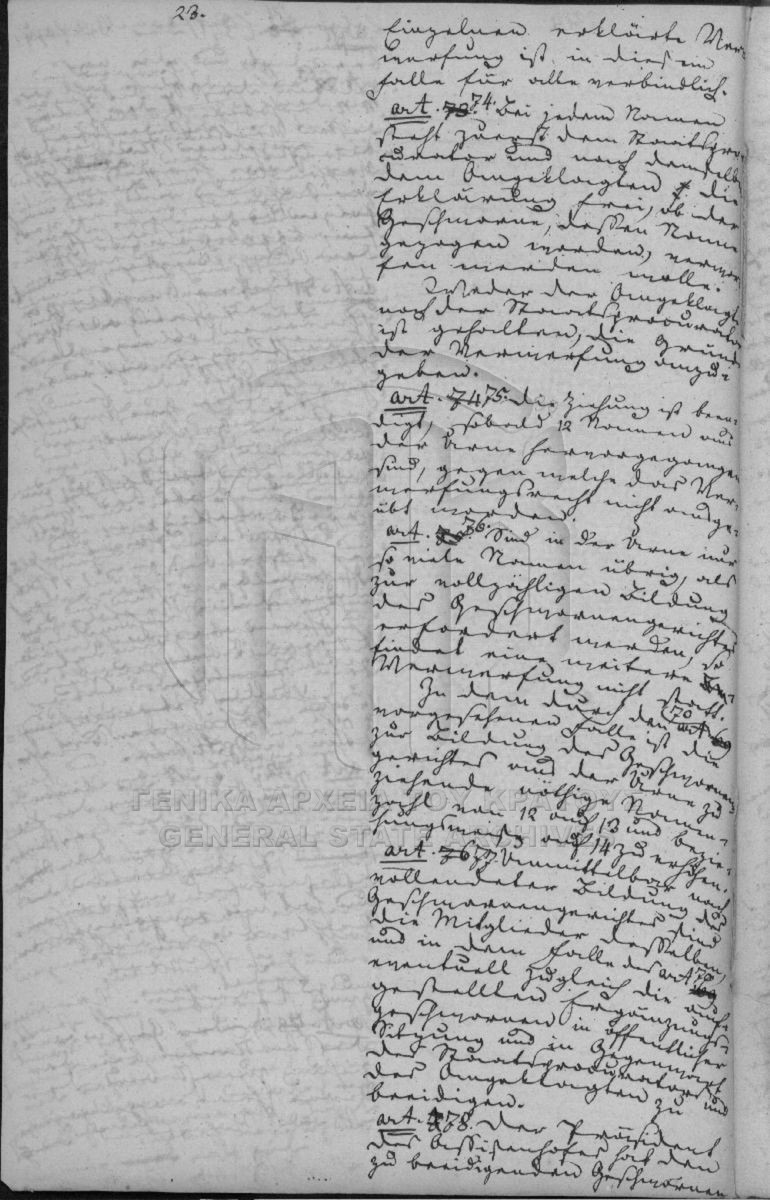 23.
Einzelnen erklärte Ver-
werfung ist in diesem
Falle für alle verbindlich.
art. 73. 74. Bei jedem Namen
steht zuerst dem Staatspro-
curator und nach demselben
dem Angeklagten die
Erklärung frei, ob der
Geschworne, dessen Name
gezogen worden, verwor-
fen werden wolle.
Weder der Angeklagte
noch der Staatsprocurator
ist gehalten, die Gründe
der Verwerfung anzu-
geben.
art. 74 75. Die Ziehung ist been-
digt, sobald 12 Namen aus
der Urne hervorgegangen
sind, gegen welche das Ver-
werfungsrecht nicht ausge-
übt worden.
art. 76. Sind in der Urne nur
so viele Namen übrig, als
zur vollzähligen Bildung
des Geschwornengerichtes
erfordert werden, so
findet eine weitere
Verwerfung nicht statt.
In dem durch den art 70 69
vorgesehenen Falle ist die
zur Bildung des Geschwornen-
gerichtes aus der Urne zu
ziehende nöthige Namen-
zahl von 12 auf 13 und bezie-
hungsweise auf 14 zu erhöhen.
art. 76 77. Unmittelbar nach
vollendeter Bildung des
Geschwornengerichtes sind
die Mitglieder desselben,
und in dem Falle des art 70 69
eventuell zugleich die auf-
gestellten Ergänzungs-
geschwornen in öffentlicher
Sitzung und in Gegenwart
des Staatsprocurators und
des Angeklagten zu
beeidigen.
art. 78. Der Präsident
des Assisenhofes hat den
zu beeidigenden Geschwornen
ΓΕΝΙΚΑ ΑΡΧΕΙΑ ΤΟΥ ΚΡΑΤΟΥΣ
GENERAL STATE ARCHIVES